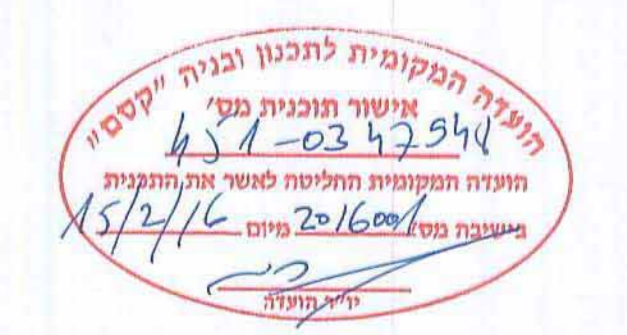 הועדה המקומית לתכנון ובניה "קסם"
אישור תוכנית מס'
451-0347548
הועדה המקומית החליטה לאשר את התכנית
בישיבה מס' 2016001 מיום 15/2/16
יו"ר הועדה